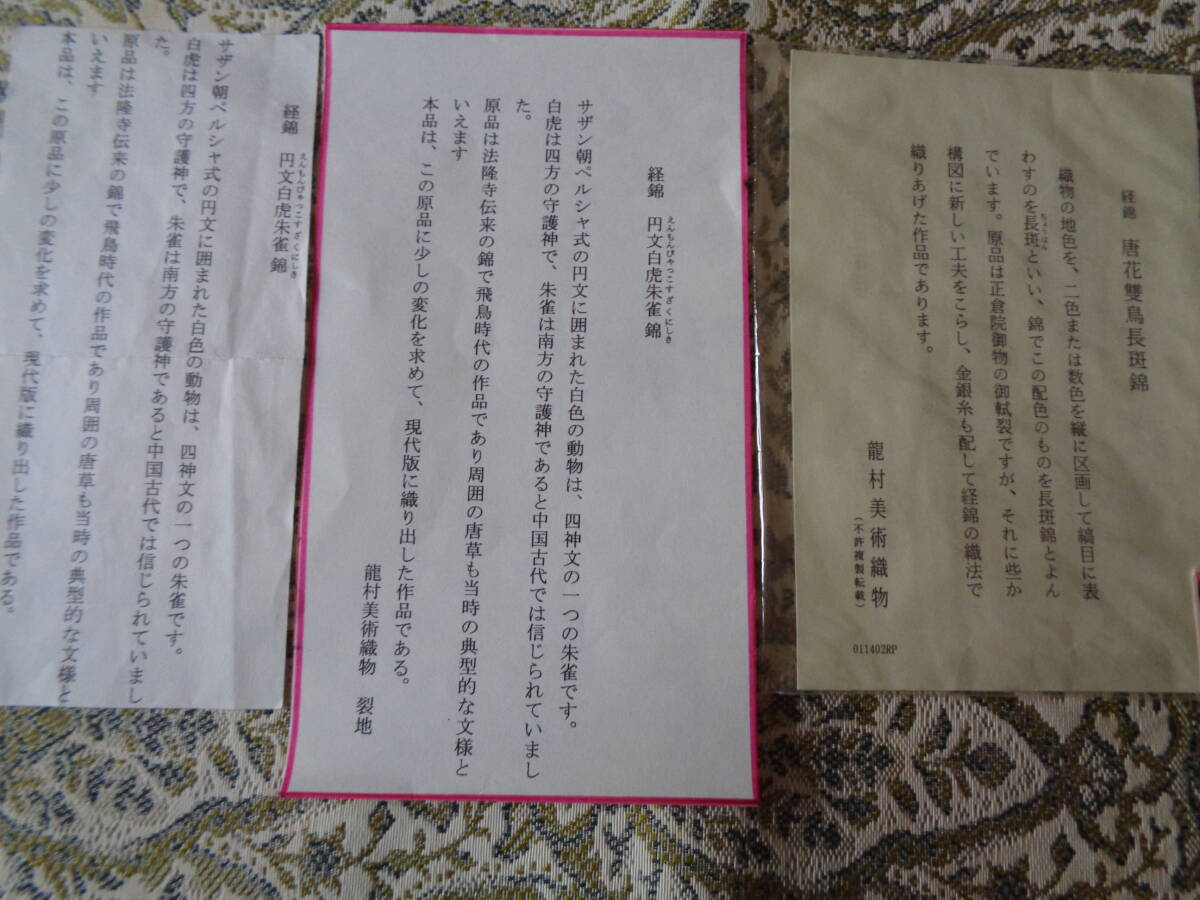 経錦　唐花雙鳥長斑錦
ちょうはん
織物の地色を、二色または数色を縦に区画して縞目に表
わすのを長斑といい、錦でこの配色のものを長斑錦とよん
でいます。原品は正倉院御物の御軾裂ですが、それに些か
構図に新しい工夫をこらし、金銀糸も配して経錦の織法で
織りあげた作品であります。
龍村美術織物
（不許複製転載）
011402RP
経錦　円文白虎朱雀錦
えんもんびゃっこすざくにしき
サザン朝ペルシャ式の円文に囲まれた白色の動物は、四神文の一つの朱雀です。
白虎は四方の守護神で、朱雀は南方の守護神であると中国古代では信じられていまし
た。
原品は法隆寺伝来の錦で飛鳥時代の作品であり周囲の唐草も当時の典型的な文様と
いえます
本品は、この原品に少しの変化を求めて、現代版に織り出した作品である。
龍村美術織物　裂地
経錦　円文白虎朱雀錦
えんもんびゃっこすざくにしき
サザン朝ペルシャ式の円文に囲まれた白色の動物は、四神文の一つの朱雀です。
白虎は四方の守護神で、朱雀は南方の守護神であると中国古代では信じられていまし
た。
原品は法隆寺伝来の錦で飛鳥時代の作品であり周囲の唐草も当時の典型的な文様と
いえます
本品は、この原品に少しの変化を求めて、現代版に織り出した作品である。